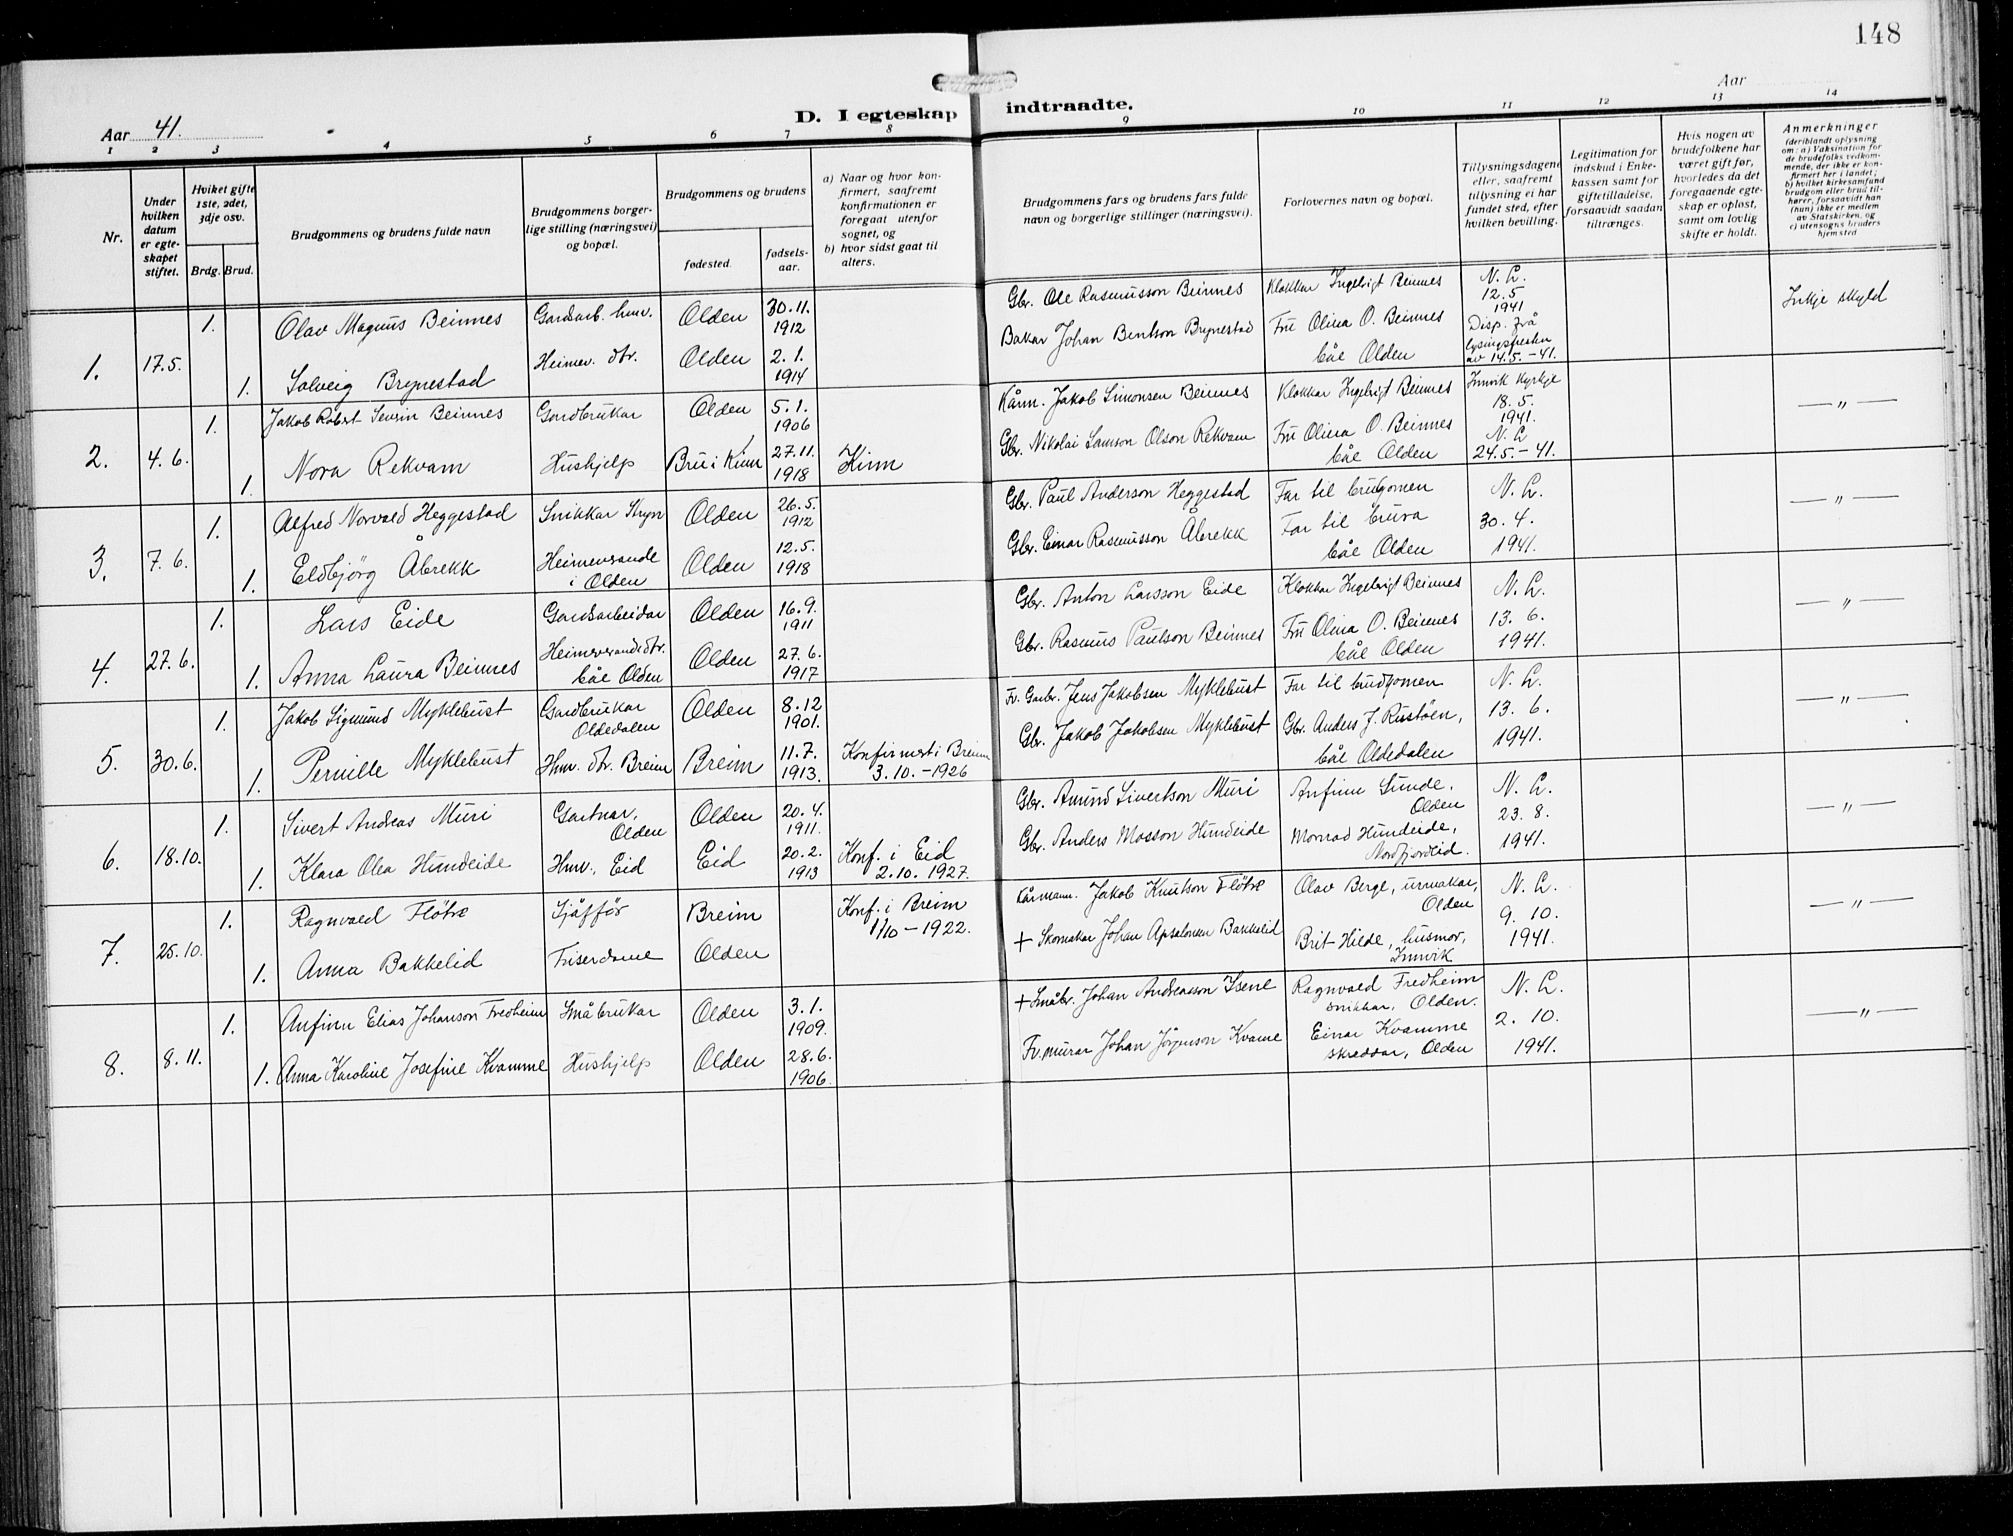 148
Aar 41.
D. I egteskap indtraadte.
Aar
1 2 3 4 5 6 7 8 9 10 11 12 13 14
Nr.
Under hvilken datum er egteskapet stiftet.
Hviket gifte 1ste, 2det, 3dje osv.
Brdg. Brud.
Brudgommens og brudens fulde navn
Brudgommens borgerlige stilling (næringsvei) og bopæl.
Brudgommens og brudens
fødested.
fødselsaar.
a) Naar og hvor konfirmert, saafremt konfirmationen er foregaat utenfor sognet, og
b) hvor sidst gaat til alters.
Brudgommens fars og brudens fars fulde navn og borgerlige stillinger (næringsvei).
Forlovernes navn og bopæl.
Tillysningsdagene eller, saafremt tillysning ei har fundet sted, efter hvilken bevilling.
Legitimation for indskud i Enkekassen samt for giftetilladelse, forsaavidt saadan tiltrænges.
Hvis nogen av brudefolkene har været gift før, hvorledes da det foregaaende egteskap er opløst, samt om lovlig skifte er holdt.
Anmerkninger (deriblandt oplysning om: a) Vaksination for de brudefolks vedkommende, der ikke er konfirmert her i landet; b) hvilket kirkesamfund brudgom eller brud tilhører, forsaavidt han (hun) ikke er medlem av Statskirken, og c) utensogns bruders hjemsted
1. 17.5. 1. Olav Magnus Beinnes Gardsarb. hmv. Olden 30.11. 1912 Gbr. Ole Rasmusson Beinnes Klokkar Ingebrigt Beinnes N. L. 12.5 1941 Inkje skyld
1. Solveig Brynestad Heimev. dtr. Olden 2.1. 1914 Bakar Johan Bentson Brynestad Fru Olina O. Beinnes båe Olden Disp. frå lysingsfristen av 14.5.-41.
2. 4.6. 1. Jakob Robert Severin Beinnes Gardbrukar Olden 5.1. 1906 Kårm. Jakob Simonsen Beinnes Klokkar Ingebrigt Beinnes Innvik kyrkje 18.5. 1941. — " —
1. Nora Rekvam Hushjelp Bru i Kinn 27.11. 1918 Kinn Gbr. Nikolai Samson Olson Rekvam Fru Olina O. Beinnes båe Olden N. L 24.5.-41.
3. 7.6. 1. Alfred Norvald Heggestad Snikkar Stryn Olden 26.5. 1912 Gbr. Paul Anderson Heggestad Far til brudgomen N. L. — " —
1. Eldbjörg Åbrekk Heimeverande i Olden Olden 12.5. 1918 Gbr. Einar Rasmusson Åbrekk Far til brura båe Olden 30.4. 1941.
4. 27.6. 1. Lars Eide Gardsarbeidar Olden 16.9. 1911 Gbr. Anton Larsson Eide Klokkar Ingebrigt Beinnes N. L. — " —
1. Anna Laura Beinnes Heimeverandedtr. båe Olden Olden 27.6. 1917 Gbr. Rasmus Paulson Beinnes Fru Olina O. Beinnes båe Olden 13.6. 1941.
5. 30.6. 1. Jakob Sigmund Myklebust Gardbrukar Oldedalen Olden 8.12 1901. Fv. Gardbr. Jens Jakobsen Myklebust Far til brudgomen N. L. — " —
1. Pernille Myklebust Hmv. dtr. Breim Breim 11.7. 1913. Konfirmert i Breim 3.10.-1926 Gbr. Jakob Jakobsen Myklebust Gbr. Anders J. Rustöen, båe Oldedalen 13.6. 1941.
6. 18.10. 1. Sivert Andreas Muri Gartnar, Olden Olden 20.4. 1911. Gbr. Amund Sivertson Muri Anfinn Sunde, Olden N. L. — " —
1. Klara Olea Hundeide Hmv., Eid Eid 20.2. 1913 Konf. i Eid 2.10.1927. Gbr. Anders Mosson Hundeide Monrad Hundeide, Nordfjordeid. 23.8. 1941.
7. 25.10. 1. Ragnvald Flötre Sjåffør Breim Konf. i Breim 1/10-1922. Kårmann. Jakob Knutson Flötre Olav Berge, urmakar, Olden N. L. — " —
1. Anna Bakkelid Friserdame Olden + Skomakar Johan Apsalonsen Bakkelid Brit Hilde, husmor, Innvik 9.10. 1941.
8. 8.11. 1. Anfinn Elias Johanson Fredheim Småbrukar Olden 3.1. 1909. + Småbr. Johan Andreasson Isene Ragnvald Fredheim snikkar, Olden. N. L. — " —
1. Anna Karoline Josefine Kvamme Hushjelp Olden 28.6. 1906. Fv. murar Johan Jörgenson Kvamme Einar Kvamme skreddar, Olden 2.10. 1941.